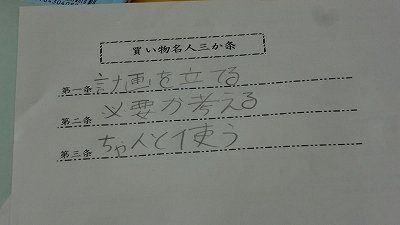 買い物名人三か条
第一条 計画を立てる
第二条 必要か考える
第三条 ちゃんと使う